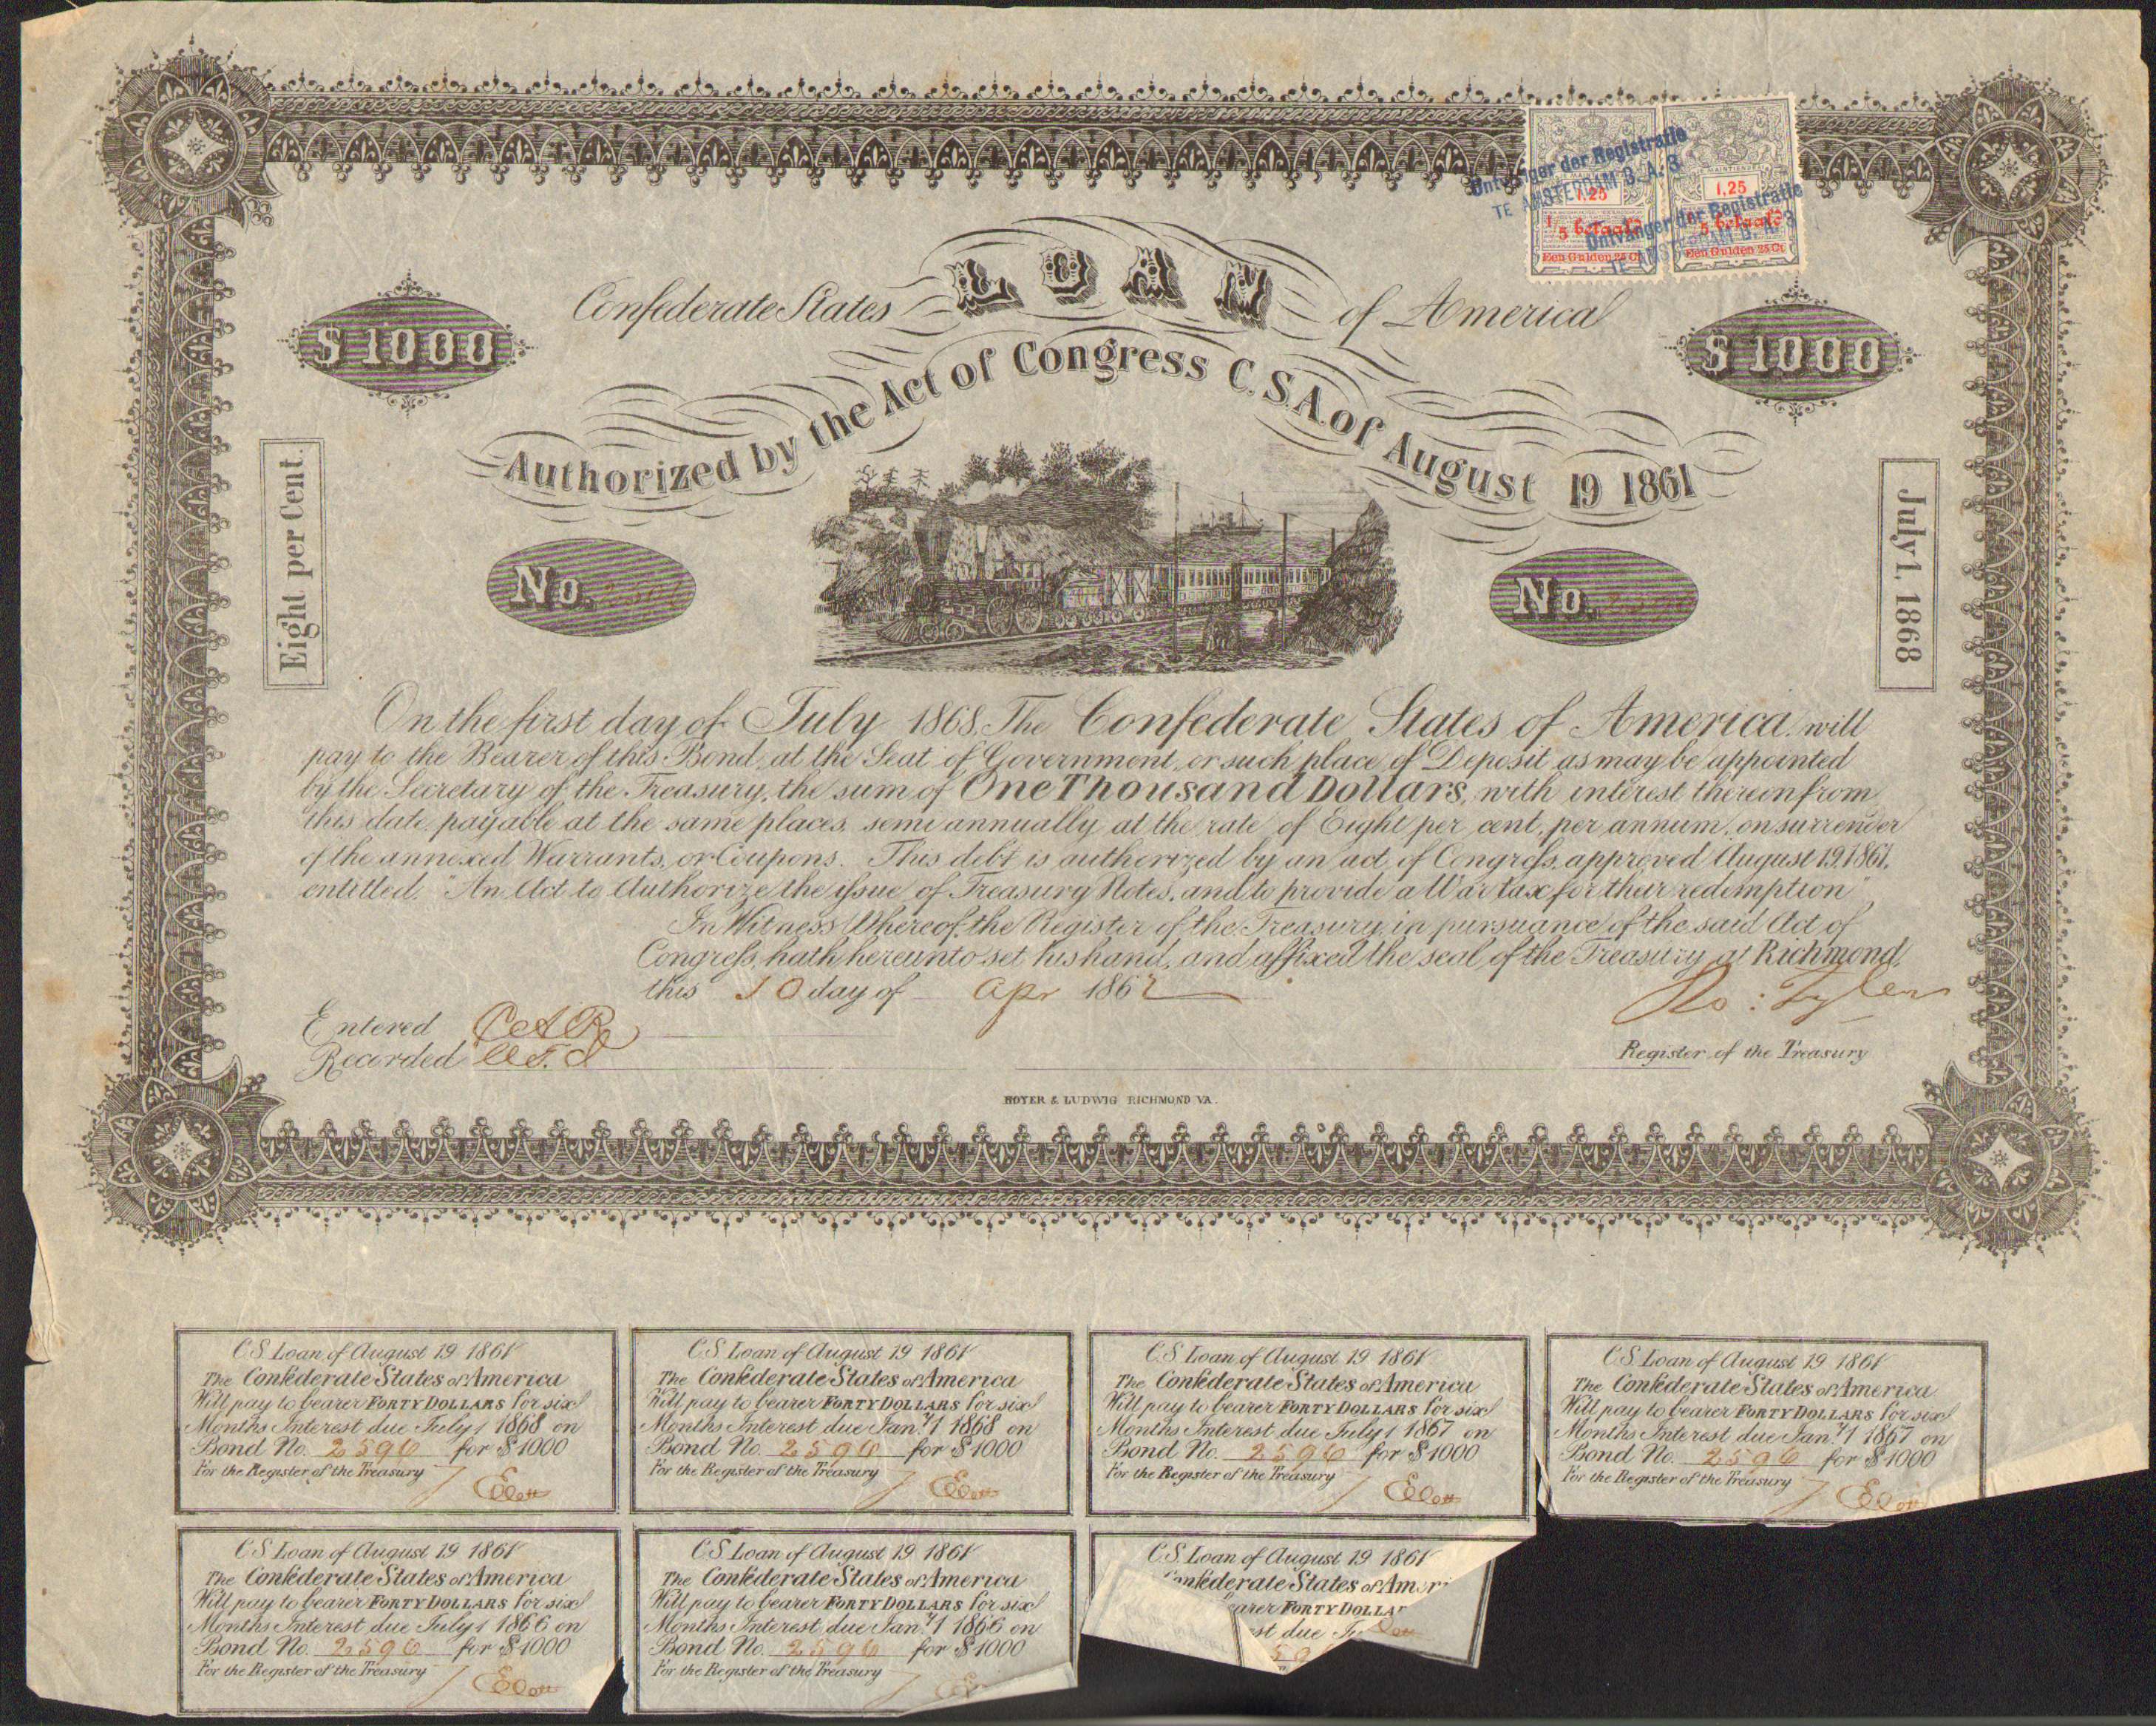 Confederate States LOAN of America
$1000
$1000
Authorized by the Act of Congress C.S.A. of August 19 1861
1,25
1,25
Een Gulden 25 Ct
Een Gulden 25 Ct
Ontvanger der Registratie
TE AMSTERDAM B. A. 3
Ontvanger der Registratie
TE AMSTERDAM B. A. 3
Eight per Cent.
July 1, 1868
No.
No.
On the first day of July 1868, The Confederate States of America will
pay to the Bearer of this Bond, at the Seat of Government, or such place of Deposit as may be appointed
by the Secretary of the Treasury, the sum of One Thousand Dollars, with interest thereon from
this date, payable at the same places, semi annually at the rate of Eight per cent, per annum, on surrender
of the annexed Warrants, or Coupons. This debt is authorized by an act of Congress, approved August 19, 1861,
entitled, "An Act to Authorize the issue of Treasury Notes, and to provide a War tax for their redemption"
In Witness Whereof, the Register of the Treasury, in pursuance of the said Act of
Congress, hath hereunto set his hand, and affixed the seal, of the Treasury at Richmond,
this 10 day of Apr 1862
Ro: Tyler
Entered CAR
Recorded
Register of the Treasury
HOYER & LUDWIG RICHMOND VA.
C.S. Loan of August 19 1861
The Confederate States of America
Will pay to bearer FORTY DOLLARS for six
Months Interest due July 1 1868 on
Bond No. 2596 for $1000
For the Register of the Treasury
C.S. Loan of August 19 1861
The Confederate States of America
Will pay to bearer FORTY DOLLARS for six
Months Interest due Jan.y 1 1868 on
Bond No. 2596 for $1000
For the Register of the Treasury
C.S. Loan of August 19 1861
The Confederate States of America
Will pay to bearer FORTY DOLLARS for six
Months Interest due July 1 1867 on
Bond No. 2596 for $1000
For the Register of the Treasury
C.S. Loan of August 19 1861
The Confederate States of America
Will pay to bearer FORTY DOLLARS for six
Months Interest due Jan.y 1 1867 on
Bond No. 2596 for $1000
For the Register of the Treasury
C.S. Loan of August 19 1861
The Confederate States of America
Will pay to bearer FORTY DOLLARS for six
Months Interest due July 1 1866 on
Bond No. 2596 for $1000
For the Register of the Treasury
C.S. Loan of August 19 1861
The Confederate States of America
Will pay to bearer FORTY DOLLARS for six
Months Interest due Jan.y 1 1866 on
Bond No. 2596 for $1000
For the Register of the Treasury
C.S. Loan of August 19 1861
Confederate States of Ameri
earer FORTY DOLLAR
est due
59